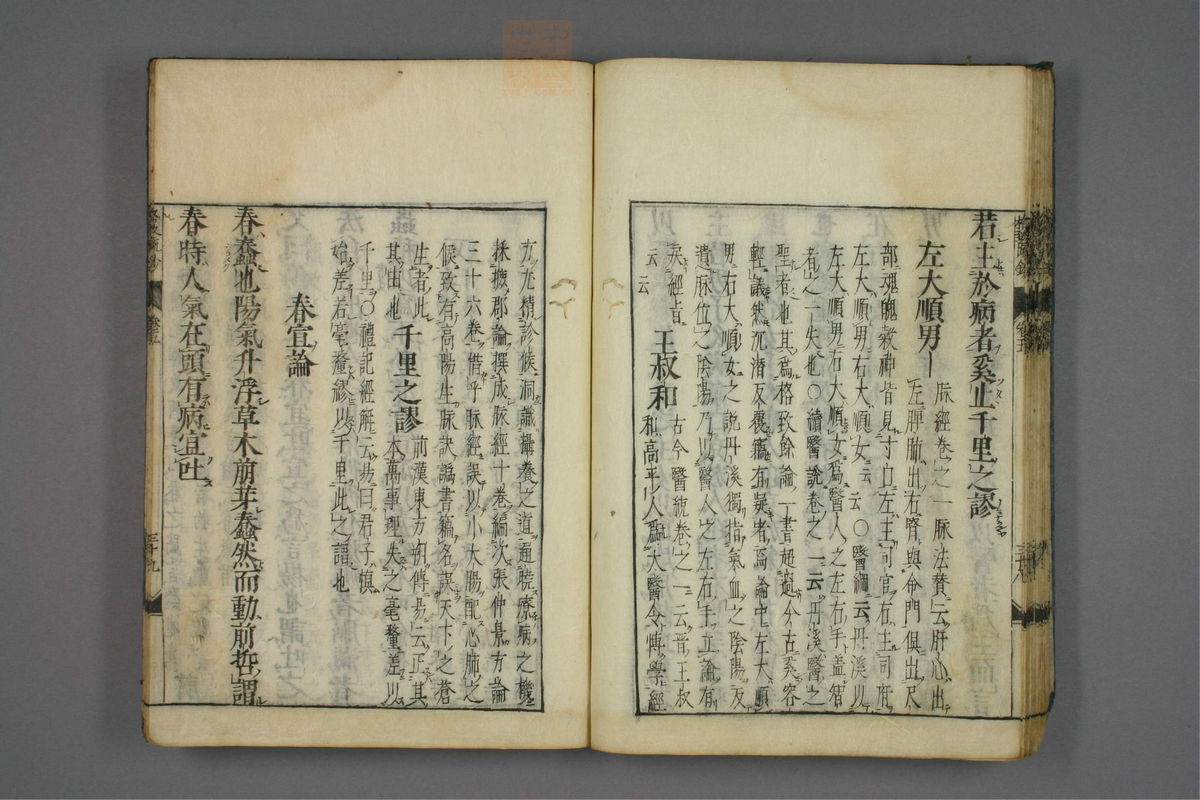 若主於病者奚止千里之謬
左大順男
脉經卷之一脉法賛云肝心出
左脾肺出右腎與命門俱出尺
部魂魄穀神皆見寸口左主司官右主司府
左大順男右大順女云云○醫綱云丹溪以
左大順男右大順女爲醫人之左右手蓋智
者之一失也○續醫說卷之一云丹溪醫之
聖者也其爲格致餘論一書超邁今古奚容
輕議然沉潛反覆竊有疑者焉論中左大順
男右大順女之說丹溪獨指氣血之陰陽反
遺脉位之陰陽乃以醫人之左右手立論有
戾經旨
云云
王叔和
古今醫統卷之一云晋王叔
和高平人爲大醫令博學經
方尤精診候洞識攝養之道通曉療病之機
採摭郡論撰成脉經十卷編次張仲景方論
三十六卷惜乎脉經誤以小大腸配心肺之
候致有高陽生脉訣譌書竊名誤天下之蒼
生者此
其由也
千里之謬
前漢東方朔傳易云正其
本萬事理失之毫釐差以
千里○禮記經解云易曰君子愼
始差若毫釐繆以千里此之謂也
春宣論
春蠢也陽氣升浮草木萌芽蠢然而動前哲謂
春時人氣在頭有病宜吐